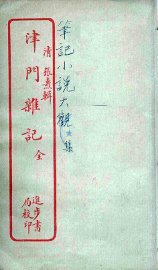 筆記小說大觀 集
清 張燾輯
津門雜記 全
進步書
局校印